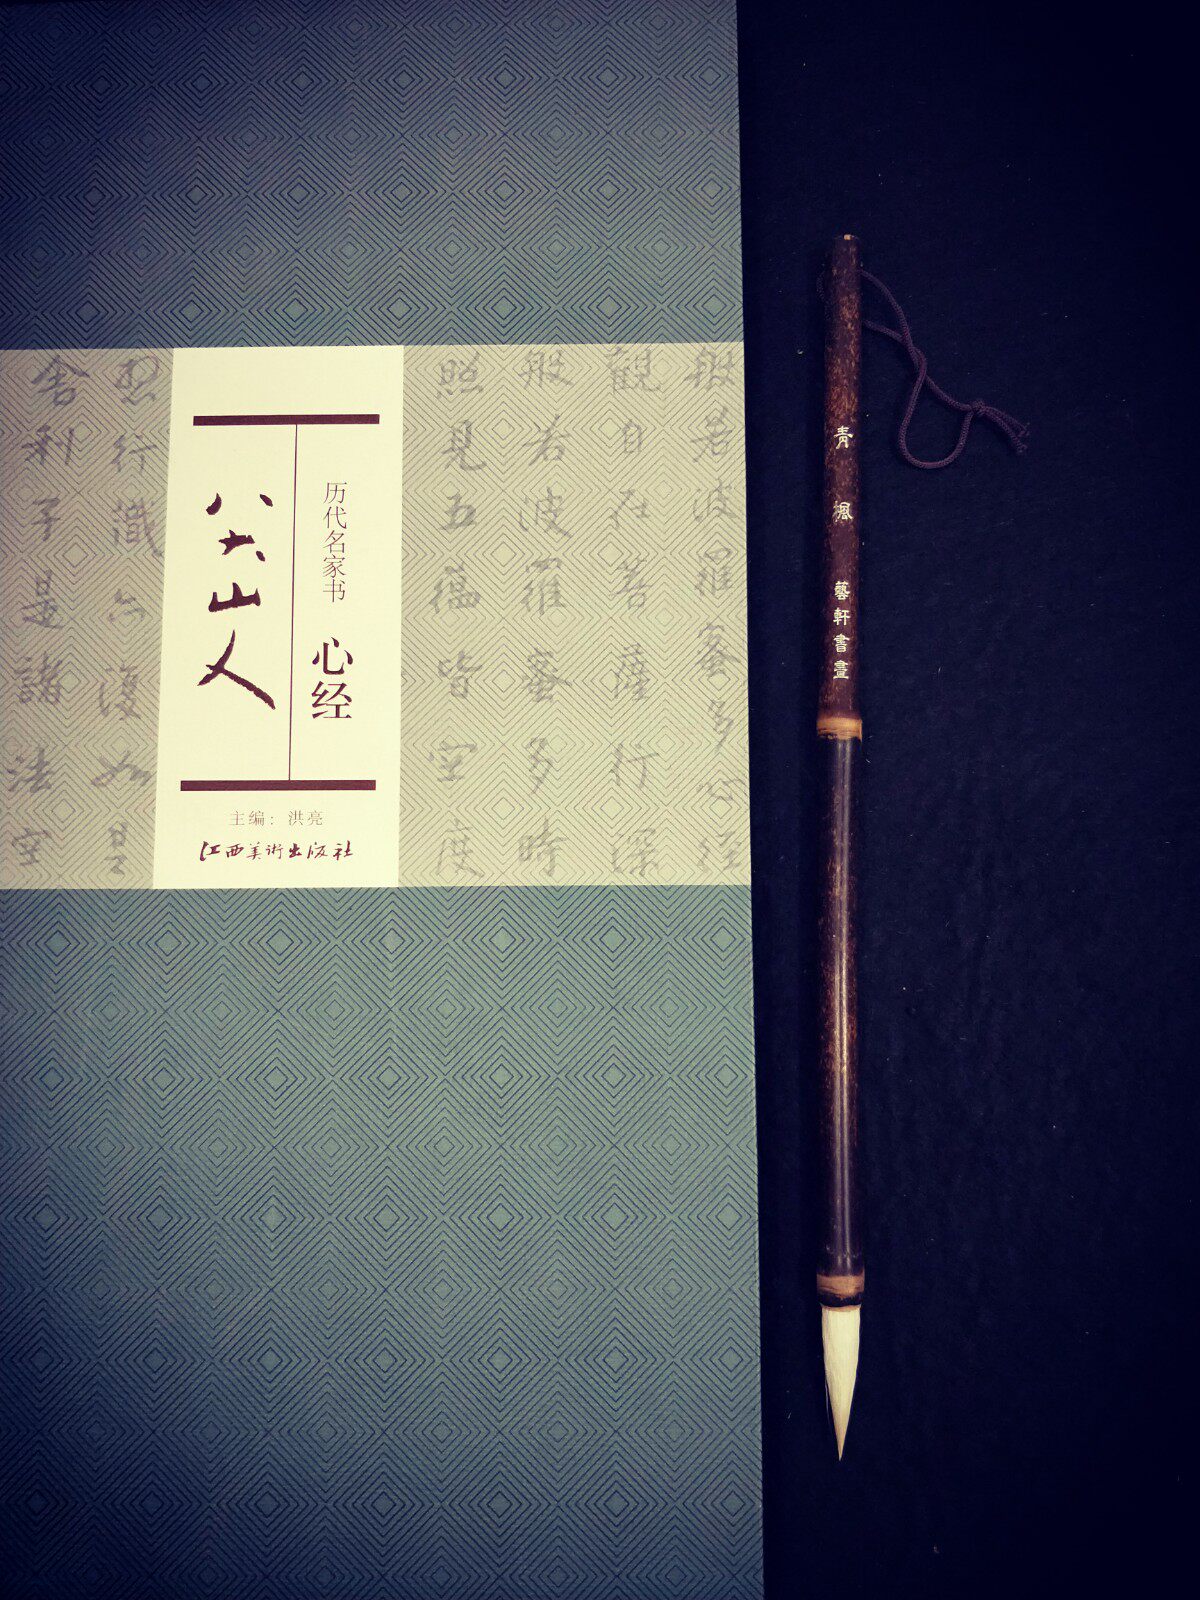 般若波羅蜜多心经
觀自在菩薩行深
般若波羅蜜多時
照見五蕴皆空度
历代名家书 心经
八大山人
主编：洪亮
江西美術出版社
想行識亦復如是
舍利子是諸法空
青楓 藝軒書畫